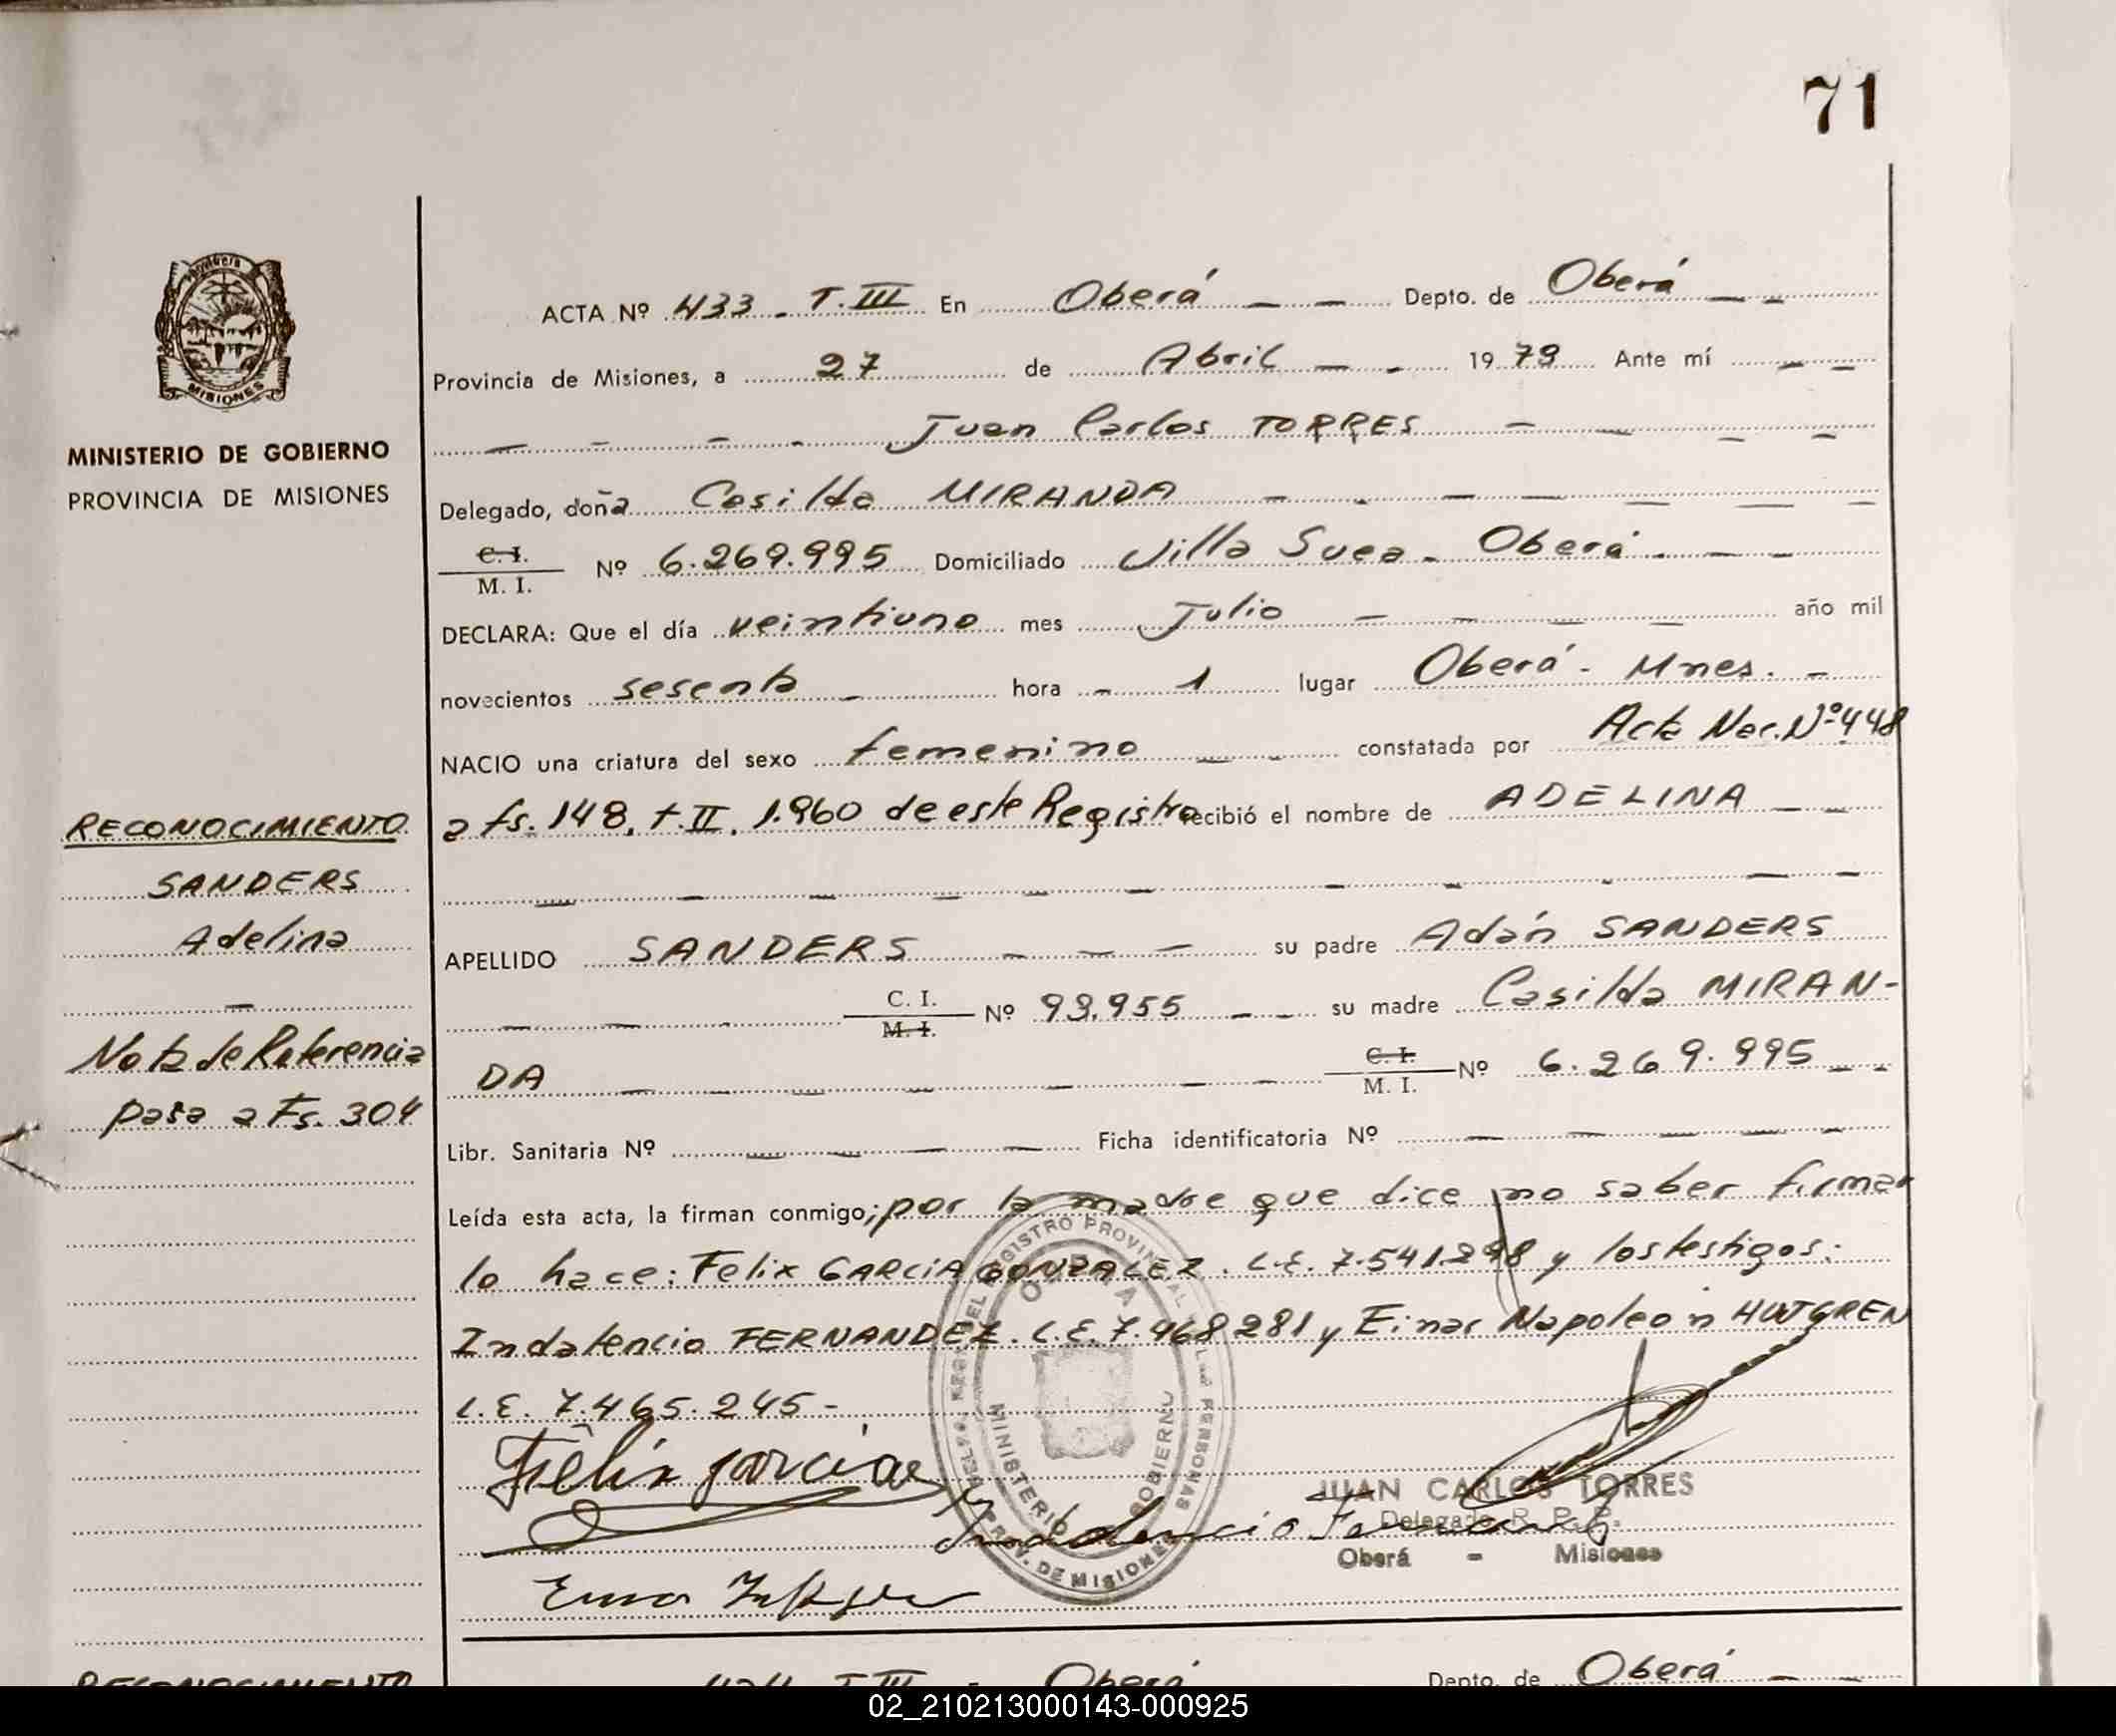 71
ACTA Nº 433 - T. III En Oberá - - Depto. de Oberá - -
Provincia de Misiones, a 27 de Abril - - 1979 Ante mí - -
- - - - Juan Carlos TORRES - - - -
MINISTERIO DE GOBIERNO
PROVINCIA DE MISIONES
Delegado, doña Casilda MIRANDA - - - - - - -
C. I.
M. I. Nº 6.269.995 Domiciliado Villa Suea - Oberá - - -
DECLARA: Que el día veintiuno mes Julio - - - - año mil
novecientos sesenta - hora - 1 lugar Oberá - Mnes. -
NACIO una criatura del sexo femenino - - constatada por Acta Nac. Nº 448
a fs. 148, t. II, 1.960 de este Registro recibió el nombre de ADELINA - -
- - - - - - - - - - -
APELLIDO SANDERS - - - su padre Adán SANDERS
- - - C. I.
M. I. Nº 93.955 - - su madre Casilda MIRAN-
DA - - - - - - - C. I.
M. I. Nº 6.269.995 - -
Libr. Sanitaria Nº - - - - Ficha identificatoria Nº - - - - -
Leída esta acta, la firman conmigo; por la madre que dice no saber firmar
lo hace: Felix GARCIA GONZALEZ. L.E. 7.541.298 y los testigos:
Indalencio FERNANDEZ. L.E. 7.468281 y Einar Napoleon HULTGREN
L.E. 7.465.245 -
RECONOCIMIENTO
SANDERS
Adelina
-
Nota de Referencia
pasa a Fs. 304
Félix garcia
Indalencio Fernandez
JUAN CARLOS TORRES
Delegado R. P. P.
Oberá - Misiones
MINISTERIO GOBIERNO
PROV. DE MISIONES
RECONOCIMIENTO
434 T III - Oberá Depto. de Oberá - -
02_210213000143-000925
MISIONES